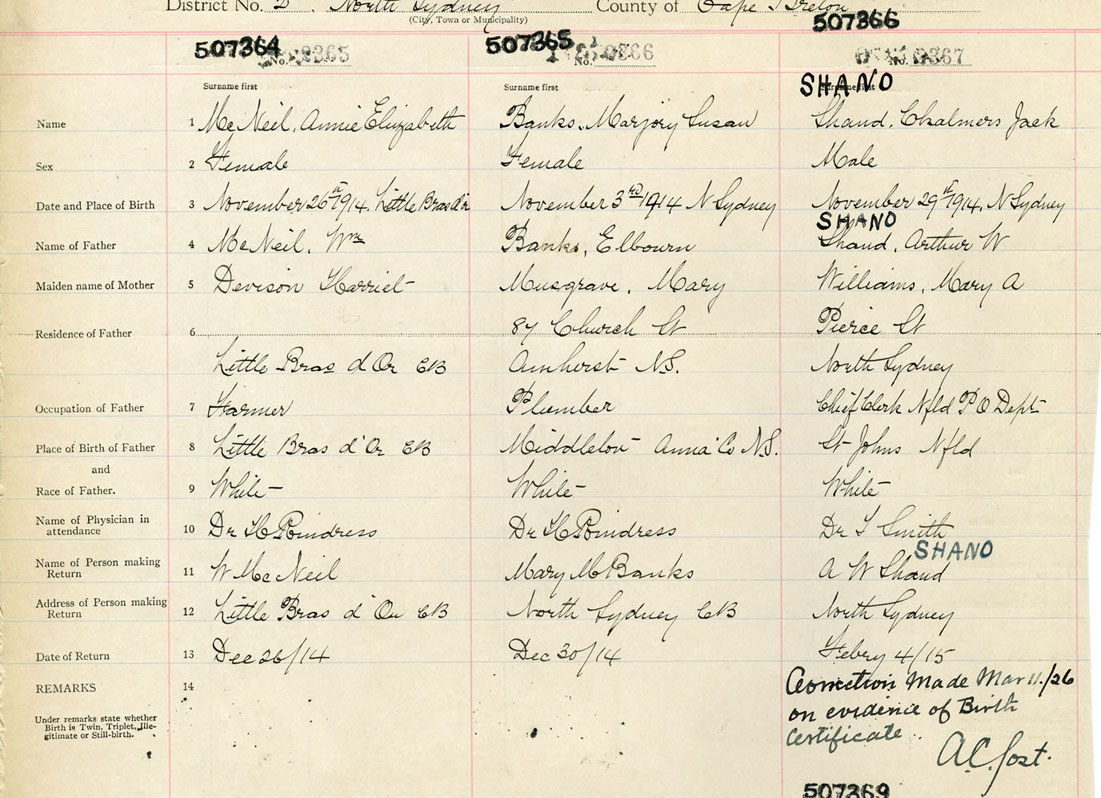 District No. 2 North Sydney County of Cape Breton
(City, Town or Municipality)
507364 507365 507366
No. 2365 No. 366 No. 367
SHANO
Surname first Surname first Surname first
Name 1 McNeil, Annie Elizabeth Banks, Marjory Susan Shand, Chalmers Jack
Sex 2 Female Female Male
Date and Place of Birth 3 November 26th 1914, Little Bras d'or November 3rd 1914 N Sydney November 29th 1914, N Sydney
SHANO
Name of Father 4 McNeil, Wm Banks, Elbourn Shand, Arthur W
Maiden name of Mother 5 Devison Harriet Musgrave, Mary Williams, Mary A
Residence of Father 6 87 Church St Pierce St
Little Bras d'Or CB Amherst N.S. North Sydney
Occupation of Father 7 Farmer Plumber Chief Clerk Nfld P O Dept
Place of Birth of Father 8 Little Bras d'Or CB Middleton Anna Co N.S. St Johns Nfld
and
Race of Father. 9 White White White
Name of Physician in
attendance 10 Dr Dr Dr Smith
SHANO
Name of Person making
Return 11 W McNeil Mary M Banks A W Shand
Address of Person making
Return 12 Little Bras d'Or CB North Sydney CB North Sydney
Date of Return 13 Dec 26/14 Dec 30/14 Febry 4/15
REMARKS 14 Correction Made Mar 11./26
Under remarks state whether
Birth is Twin, Triplet, Ille-
gitimate or Still-birth.
on evidence of Birth
Certificate
A.C. Jost.
507369